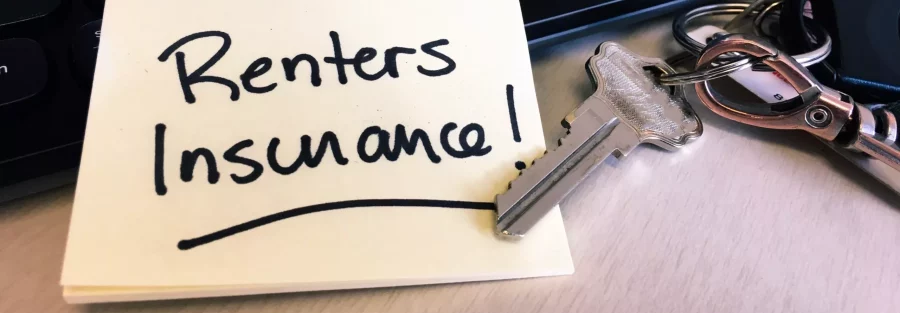 Renters
Insurance!